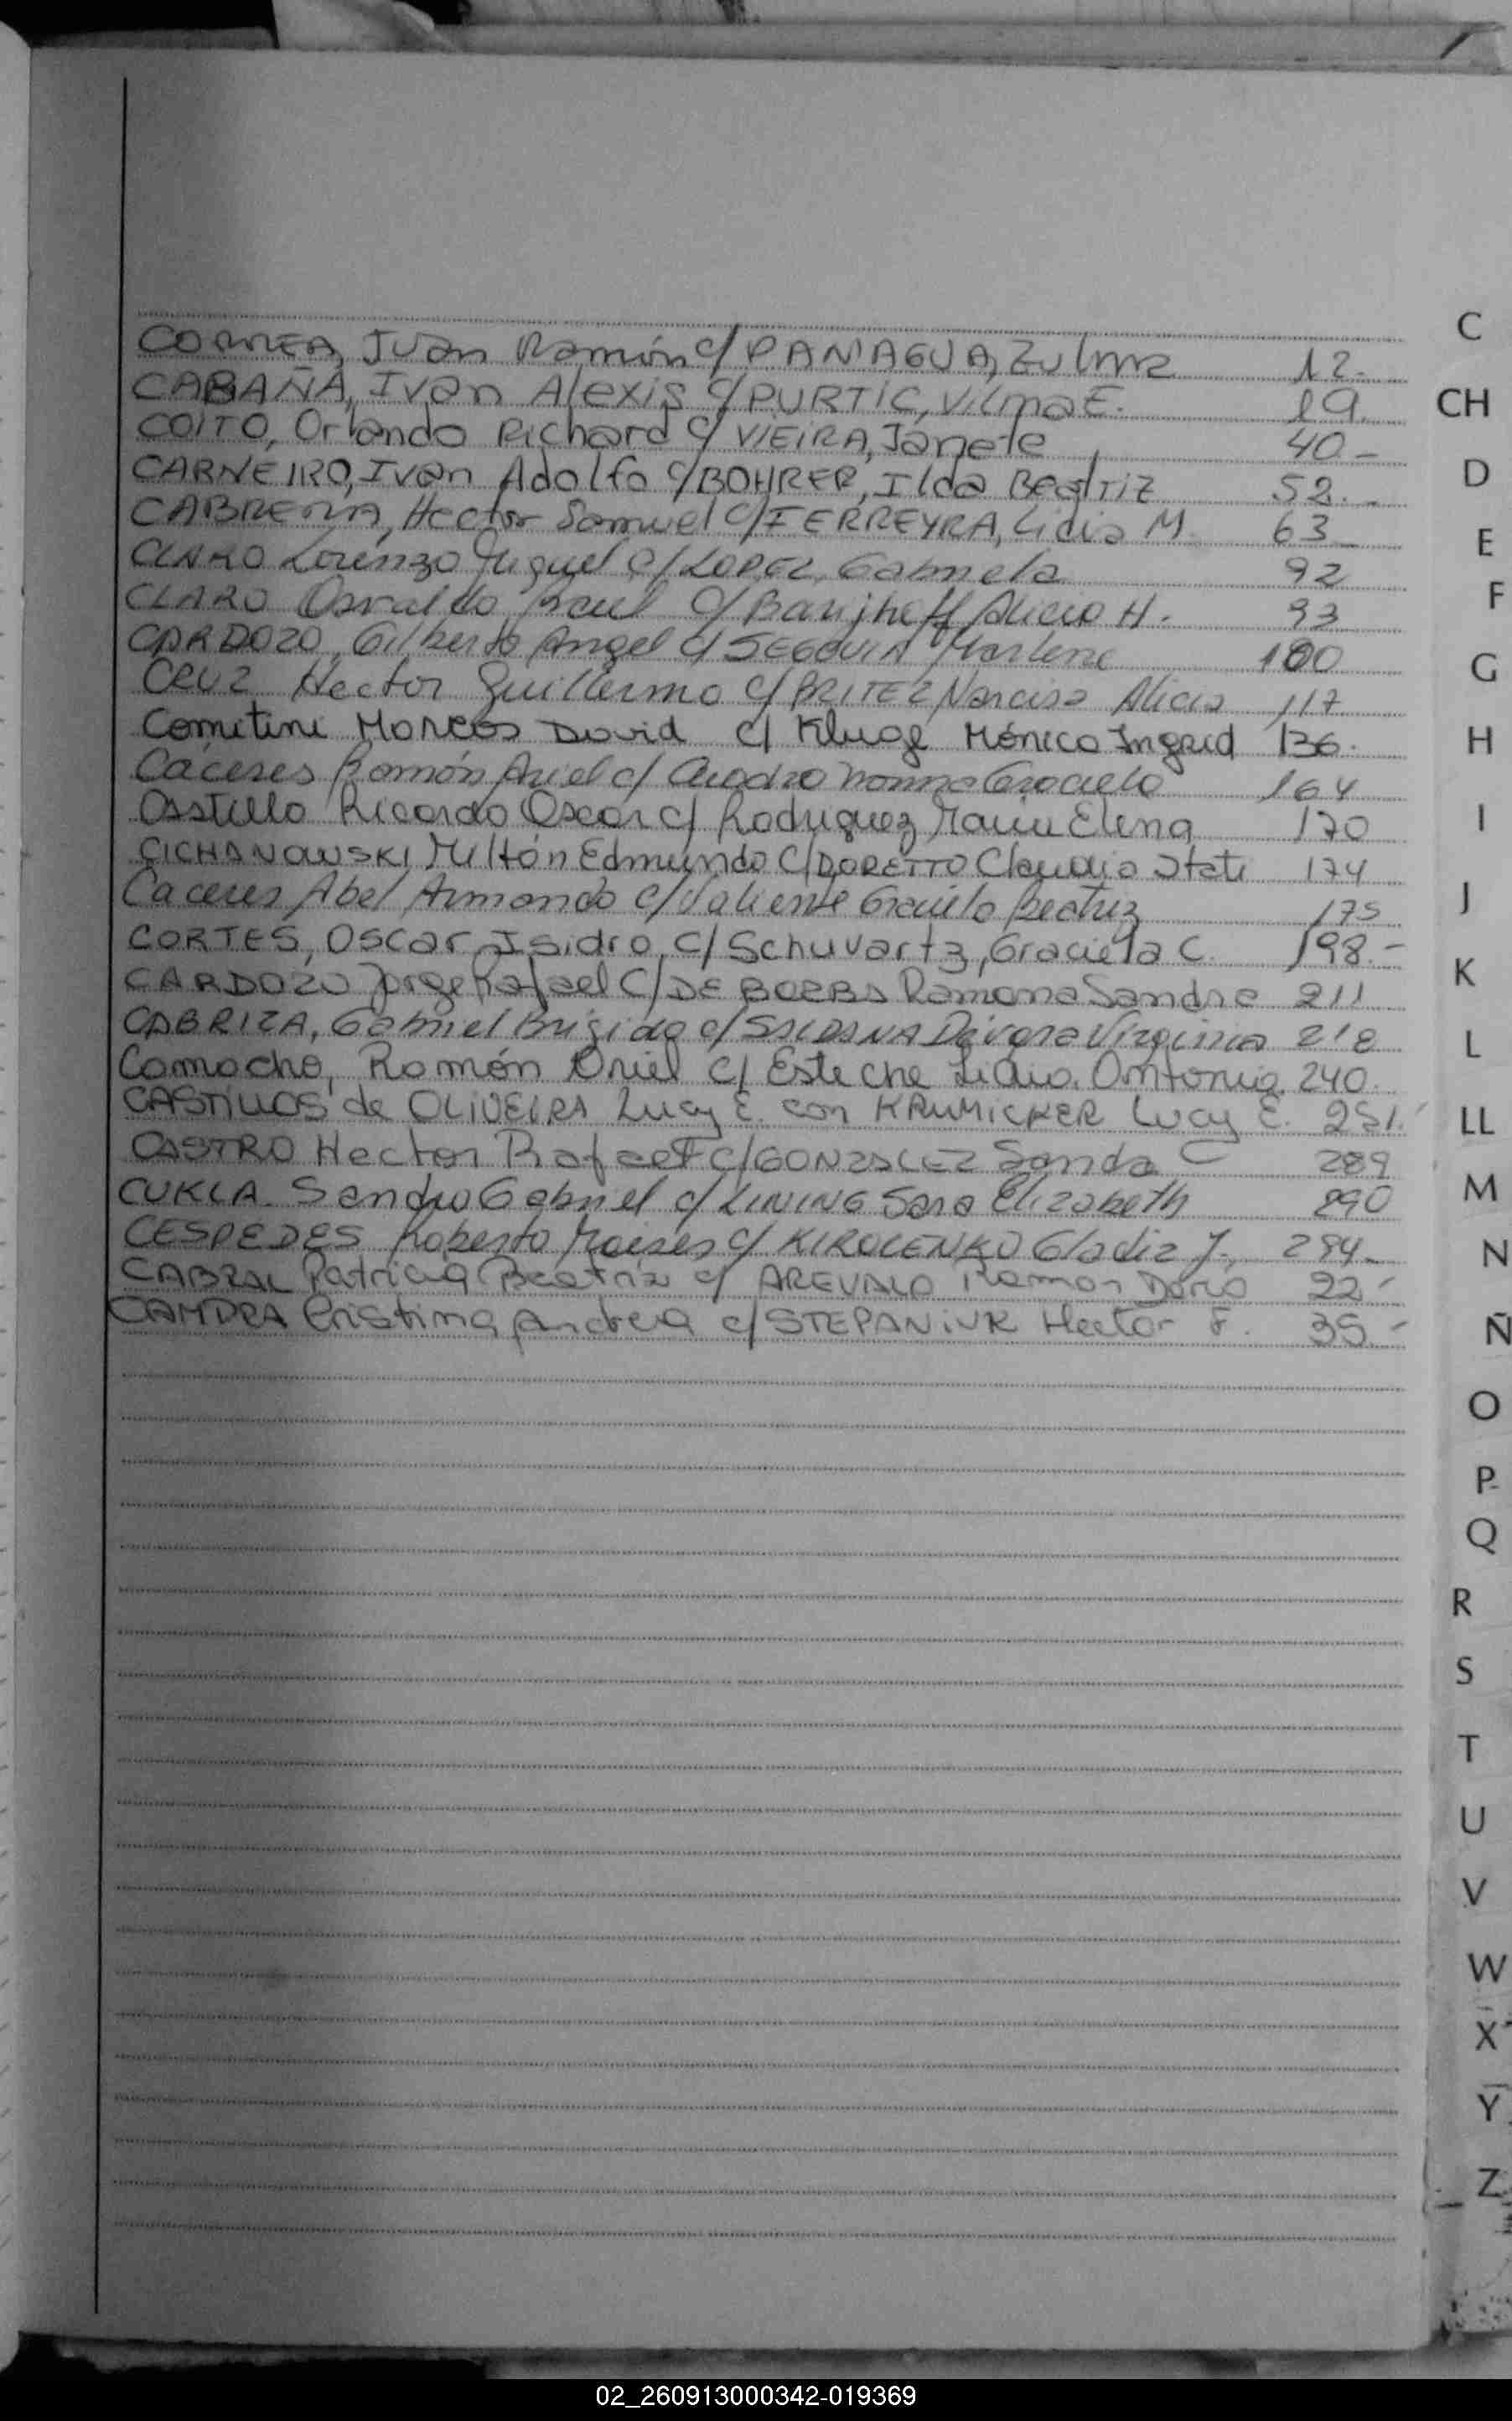 CORREA, Juan Ramón c/ PANIAGUA, Zulma 12.-
CABAÑA, Ivan Alexis c/ PURTIC, Vilma E. 19.
COITO, Orlando Richard c/ VIEIRA, Janete 40-
CARNEIRO, Ivan Adolfo c/ BOHRER, Ilda Beatriz 52.-
CABRERA, Hector Samuel c/ FERREYRA, Lidia M. 63-
CLARO Lorenzo Miguel c/ LOPEZ, Gabriela 92
CLARO Osvaldo Raul c/ Alicia H. 93
CARDOZO, Gilberto Angel c/ SEGOVIA Marlene 100
CRUZ Hector Guillermo c/ BRITEZ Narcisa Alicia 117
Cometini Marcos David c/ Kluge Mónica Ingrid 136.
Caceres Ramón Ariel c/ Cuadra Norma Graciela 164
Castillo Ricardo Oscar c/ Rodriguez Maria Elena 170
CICHANOWSKI Miltón Edmundo c/ DORETTO Claudia Itati 174
Caceres Abel Armando c/ Valiente Graciela Beatriz 175
CORTES, Oscar Isidro, c/ Schuvartz, Graciela C. 198.-
CARDOZO Jorge Rafael c/ DE BORBA Ramona Sandra 211
CABRIZA, Gabriel Brigido c/ SALDANA Virginia 218
Camacho, Ramón Oriel c/ Esteche Lidia Antonia 240.
CASTILLOS de OLIVEIRA Lucy E. con KRUMICKER Lucy E. 251.
CASTRO Hector Rafael c/ GONZALEZ Sanda C 289
CUKLA Sandro Gabriel c/ LINING Sara Elizabeth 290
CESPEDES Roberto Moises c/ KIROLENKO Gladiz J. 294-
CABRAL Patricia Beatriz c/ AREVALO Ramon Dario 22-
CAMDRA Cristina Andrea c/ STEPANIUK Hector F. 35.-
C
CH
D
E
F
G
H
I
J
K
L
LL
M
N
Ñ
O
P
Q
R
S
T
U
V
W
X
Y
Z
02_260913000342-019369